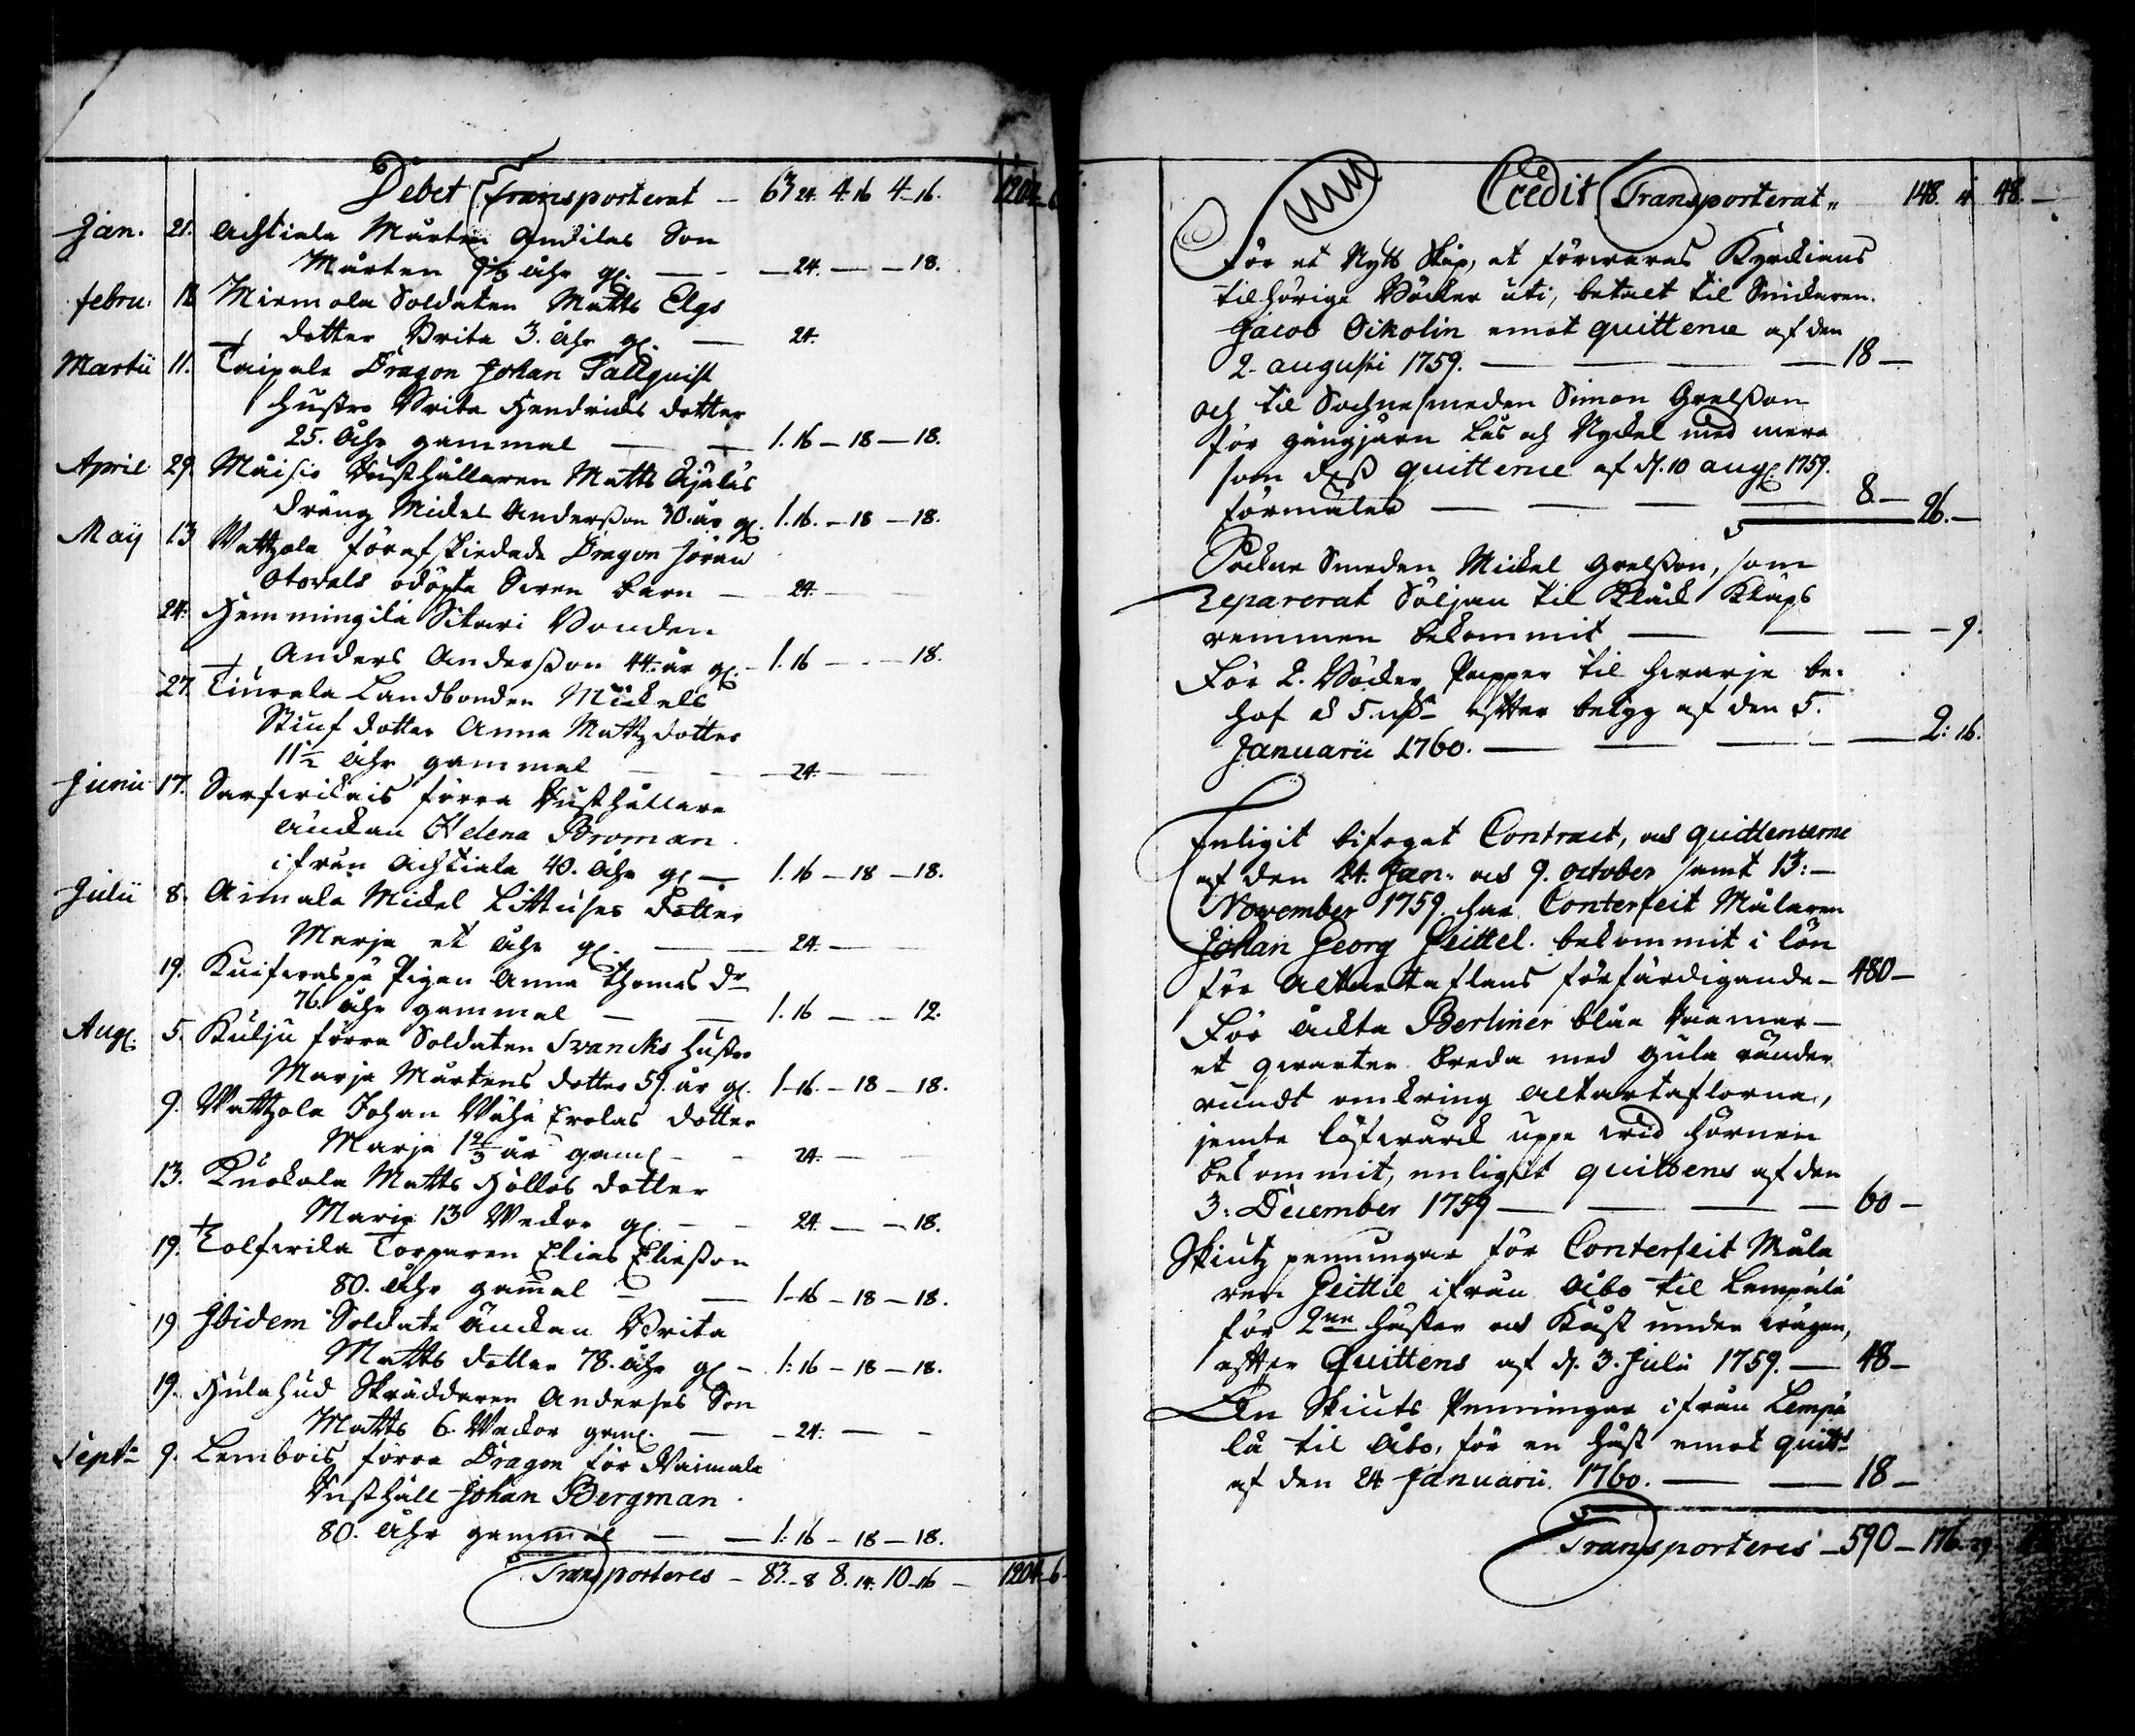 Debet Transporterat – 63 24. 4. 16 4–16. 1204–6
Jan. 21. Achtiala Mårten Andilas Son
Mårten 9½ åhr gl. — 24. — 18.
Febru. Miemola Soldaten Matts Elgs
dotter Brita 3. åhr gl. — 24.
Martii 11. Taipale Dragon Johan Tallquist
hustro Brita Hendrichs dotter
25. åhr gammal — 1. 16 – 18 – 18.
April 29. Måisio Rusthållaren Matts
dräng Mickel Andersson 30. år gl. 1. 16. – 18 – 18.
Maij 13 Wattzola förafskiedade Dragon Jöran
odöpta Swen barn — 24. —
24. Hemmingilä Sikari Bonden
Anders Andersson 44. år gl. – 1. 16 — 18.
27. Landbonden Mickels
Stiuf dotter Anna Mattz dotter
11½ åhr gammal — 24. —
Junii 17. förra Rusthållare
änckan Helena Broman
ifrån Achtiala 40. åhr gl — 1. 16 – 18 – 18.
Julii 8. Aimala Mickel dotter
Marja et åhr gl. — 24. —
19. Pigan Anna Thomas dr
76. åhr gammal — 1. 16 — 12.
Augt. 5. Kulju förra Soldaten Svancks hustro
Marja Mårtens dotter 59. år gl. 1–16. – 18 – 18.
9. Wattzola Johan Wähä Erolas dotter
Marja 1⅔ år gaml – 24. —
13. Kuokala Matts Hollos dotter
Maria 13 Weckor gl. – 24. — 18.
19. Tolfwila Torparen Elias Eliesson
80. åhr gamal — 1–16 – 18 – 18.
19 Ibidem Soldate änckan Brita
Matts dotter 78. åhr gl – 1: 16 – 18 – 18.
19. Hulahud Skräddaren Anderses Son
Matts 6. Weckor gaml. — 24: —
Septr 9. Lembois förra Dragon för Waimala
Rusthåll Johan Bergman
80. åhr gammal — 1: 16 – 18 – 18.
Transporteres – 83. – 8 8. 14. 10–16 — 1204–6
Credit Transporterat „ 148. 4 48. —
För et Nytt Skåp, at förwaras Kyrckians
tilhörige Böcker uti, betalt til Snickaren
Jacob Oikolin emot quittence af den
2. augusti 1759. — 18 —
och til Sochnesmeden Simon Grelsson
för gångjärn Lås och Nyckel med mera
som dess quittence af d. 10 augt. 1759.
förmäler — 8 – 26. —
Sockne Smeden Mickel Grelsson, som
reparerat Söljan til Kläck Kläps
remmen bekommit — – 9.
För 2. Böcker Papper til hwarje be:
hof á 5. efter belägg af den 5.
Januarii 1760. — 2: 16.
Enligit bifogat Contract, och quittencerne
af den 24. Jan. och 9. october samt 13: —
November 1759. har Conterfeit Målaren
Johan Georg Geittel. bekommit i lön
för Altartaflans förfärdigande – 480 —
För äckta Berliner blåa Ramar —
et qwarter breda med gula ränder
rundt omkring altartaflorne,
jemte löfwärck uppe wid hörnen
bekommit, enligit quittens af den
3: December 1759 — 60 —
Skiutz penningar för Conterfeit Måla
ren Geittil ifrån Åbo til Lempälä
för 2ne hästar och Kost under wägen,
efter Quittens af d. 3. Julii 1759. — 48 —
Än Skiuts Penningar ifrån Lempä
lä til Åbo, för en häst emot quitts
af den 24 Januarii. 1760. — 18 —
Transporteres – 590 – 176 29